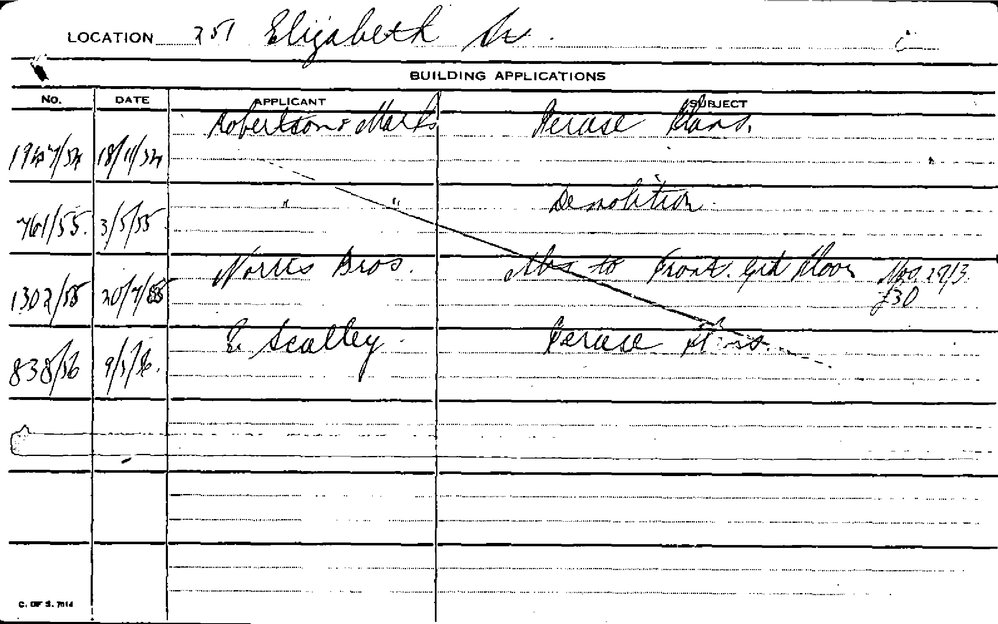 LOCATION 251 Elizabeth St.
BUILDING APPLICATIONS
No. DATE APPLICANT SUBJECT
1947/54 18/11/54 Robertson & Marks Peruse Plans.
761/55. 3/5/55 " " Demolition.
1302/55 20/7/55 Norris Bros. to Front. Grd Floor
£30
838/56 9/5/56. E. Scalley. Peruse Plans.
C. OF S. 7014